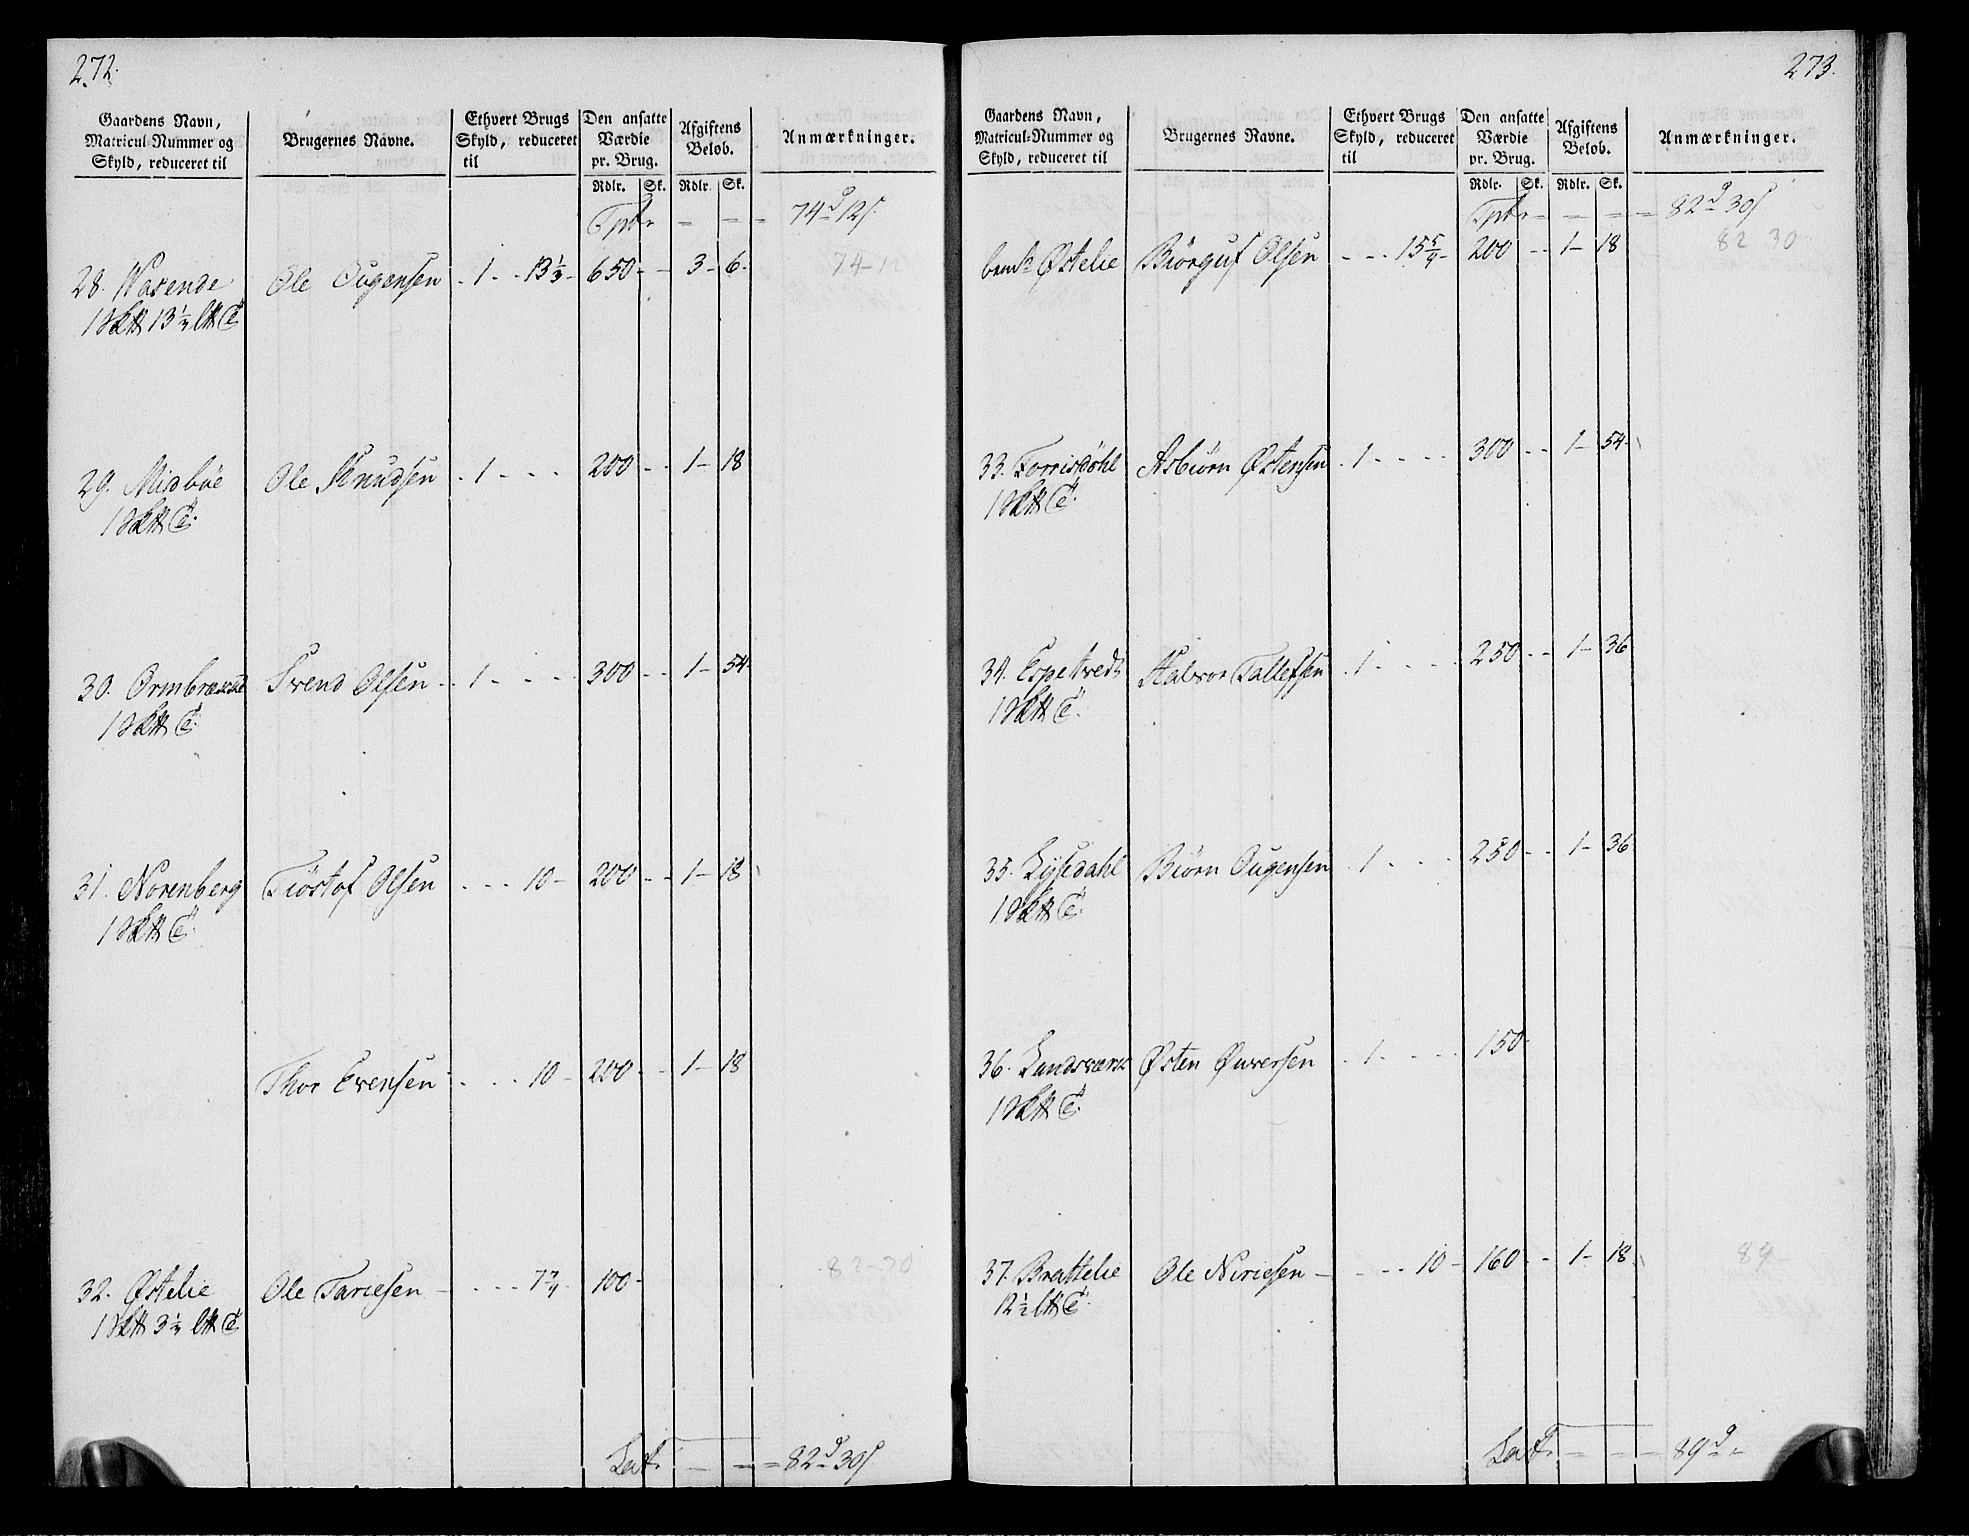 272.
Gaardens Navn, Matricul-Nummer og Skyld, reduceret til | Brugernes Navne. | Ethvert Brugs Skyld, reduceret til | Den ansatte Værdie pr. Brug. | Afgiftens Beløb. | Anmærkninger.
Rdlr. | Sk. | Rdlr. | Sk.
Tpt - - - 74 d 12 s
28. Wasende Ole Ougensen . 1 - - 13 1/3 - 650 - - 3 - 6.
74-12
13 1/3
29. Midbøe Ole Knudsen . 1 - - - 200 - - 1 - 18
1
30. Ormbrække Svend Olsen - . 1 - - - 300 - - 1 - 54
1
31. Norenberg Tiøstof Olsen . - - - 10 - 200 - - 1 - 18
1
Thor Evensen . - - - 10 - 200 - - 1 - 18
82-30
32. Østelie Ole Tariesen - - - - 7 100 -
1
Lat. - - - 82 d 30 s
273.
Gaardens Navn, Matricul-Nummer og Skyld, reduceret til | Brugernes Navne. | Ethvert Brugs Skyld, reduceret til | Den ansatte Værdie pr. Brug. | Afgiftens Beløb. | Anmærkninger.
Rdlr. | Sk. | Rdlr. | Sk.
Tpt - - - 82 d 30 s
Østelie Biørguf Olsen - - - 15 200 - - 1 - 18
82 30
33. Torrisdøhl Asbiørn Østensen . 1 - - - - 300 - - 1 - 54
1
34. Espetvedt Halvor Tallefsen . 1 - - - - 250 - - 1 - 36
1
35. Lysedahl Biørn Ougensen . 1 - - - 250 - - 1 - 36
1
36. Landsværk Østen Øuversen . 1 - - - - 150 -
1
37. Brattelie Ole Niriesen - - - - 10 - 160 - - 1 - 18
89
12 1/2
Lat. - - - 89 d -